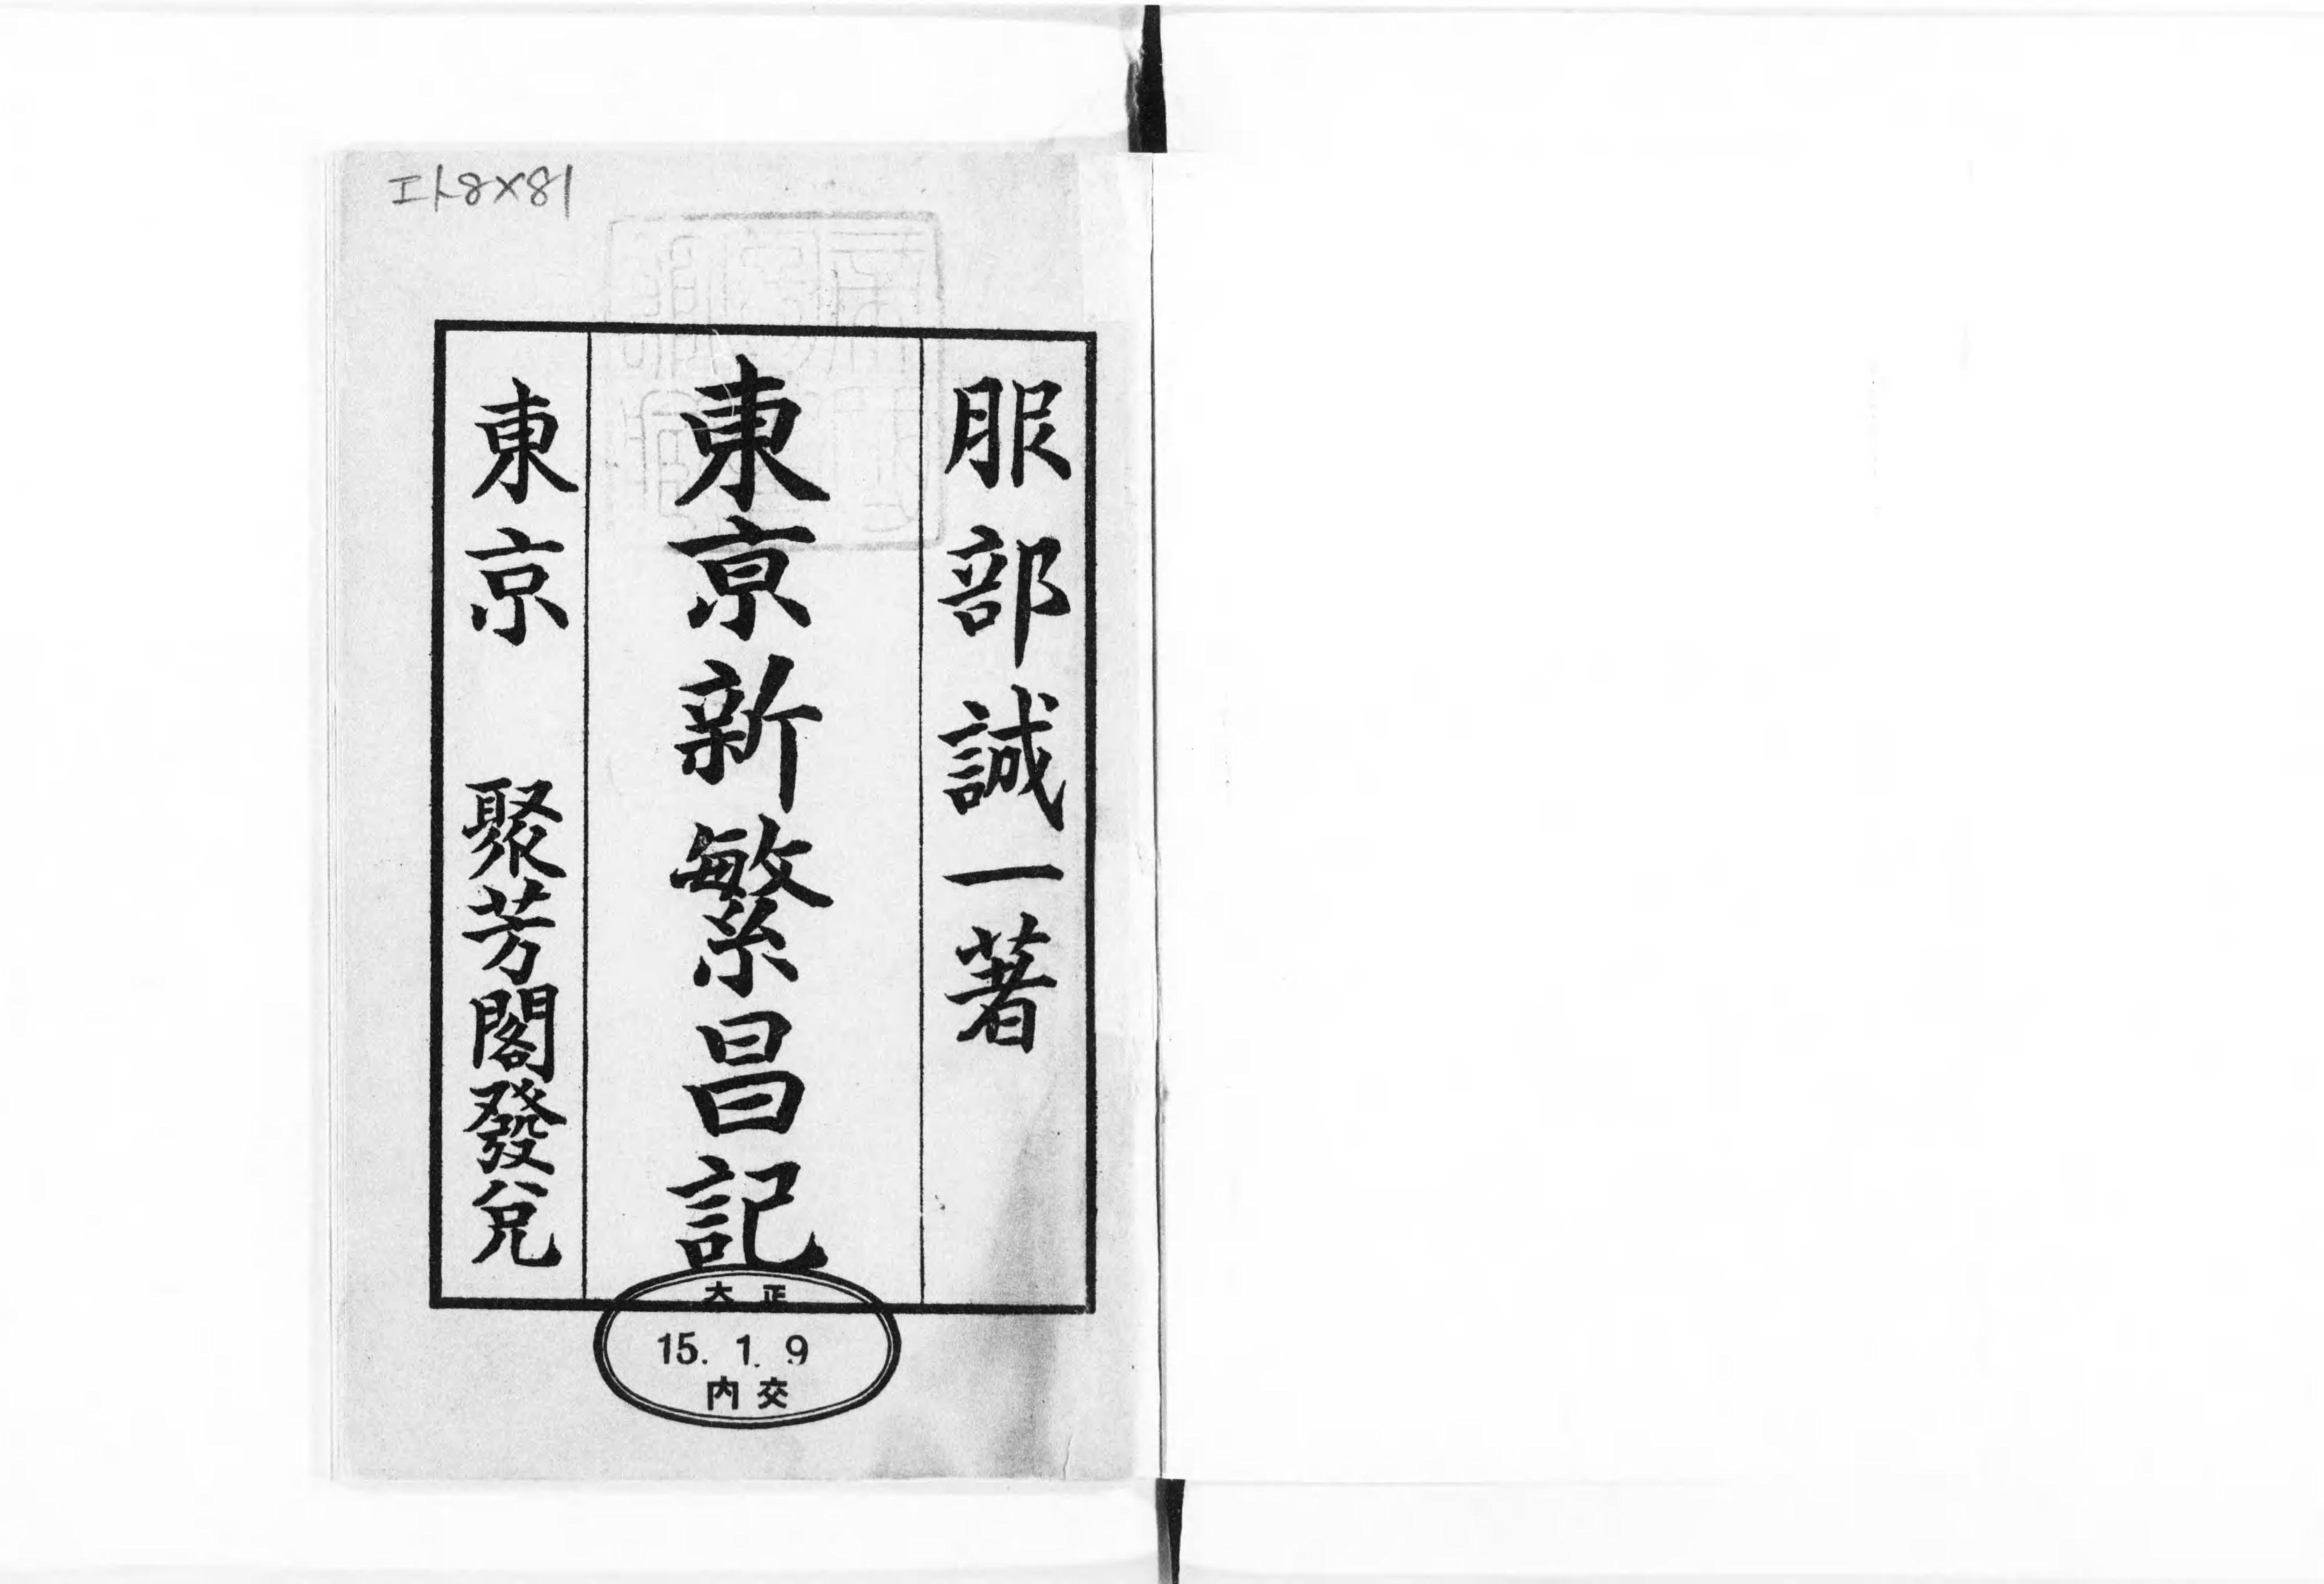 服部誠一著
東亰新繁昌記
東京 聚芳閣發兌
大正
15. 1. 9
内交